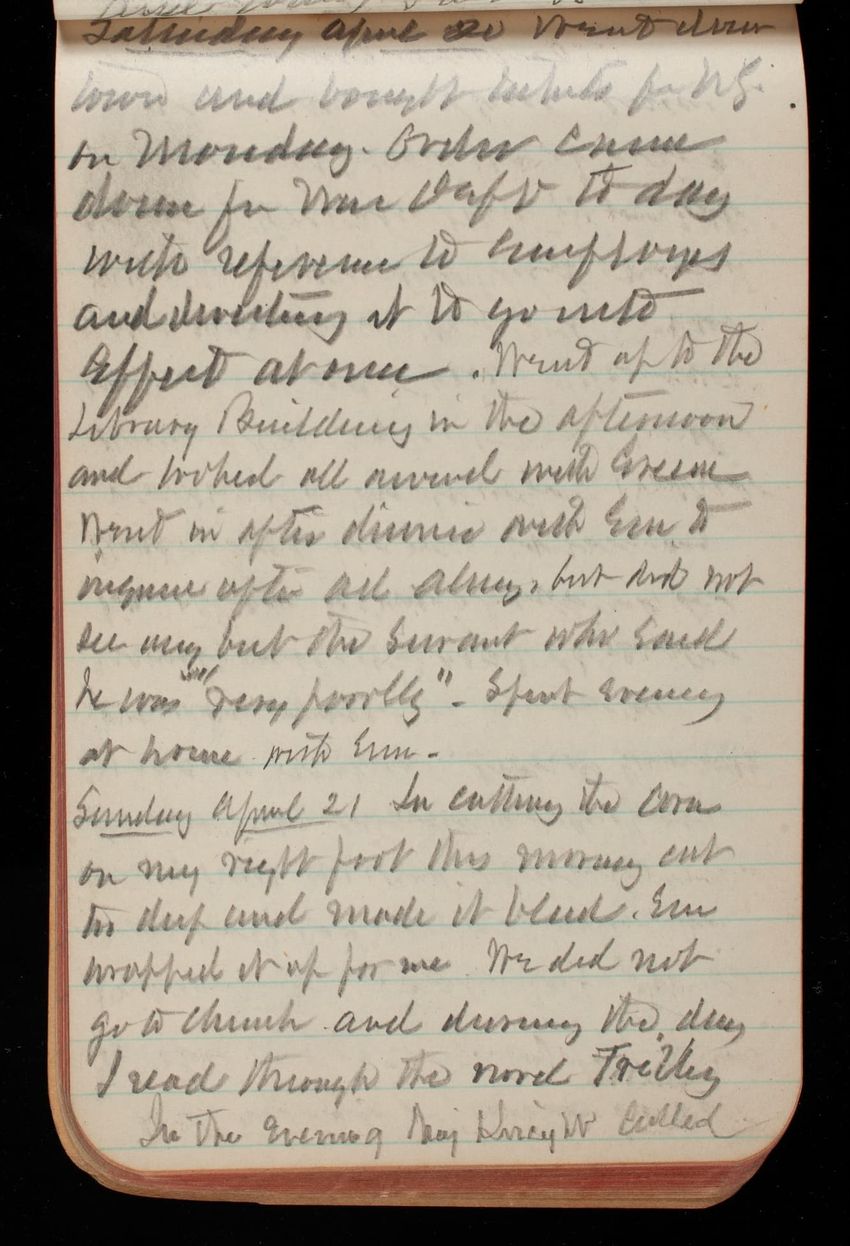 Saturday April 20 Went down
town and bought tickets for N.Y.
on Monday. Order came
down from War Dept to day
with reference to employees
and directing it to go into
Effect at once. Went up to the
Library Building in the afternoon
and looked all around with Green
Went in after dinner with Em to
inquire after
but did not
see any but the Servant who said
he was "very poorly" - Spent Evening
at home with Em -
Sunday April 21 In cutting the corn
on my right foot this morning cut
too deep and made it bleed. Em
wrapped it up for me We did not
go to church and during the day
I read through the novel Trilby
In the Evening Maj Knight called